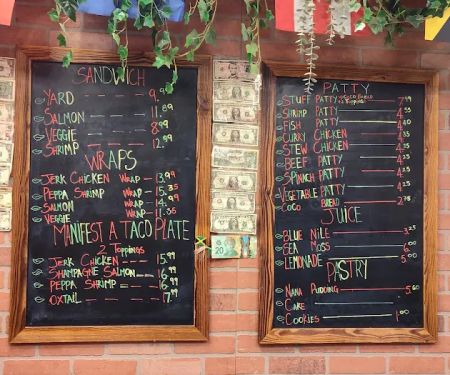 SANDWICH
YARD 9.99
SALMON 11.89
VEGGIE 8.99
SHRIMP 12.89
WRAPS
JERK CHICKEN WRAP 13.99
PEPPA SHRIMP WRAP 15.35
SALMON WRAP 14.99
VEGGIE WRAP 11.35
MANIFEST A TACO PLATE
2 TOPPINGS
JERK CHICKEN 15.99
SHAMPAGNE SALMON 16.99
PEPPA SHRIMP 16.99
OXTAIL 17.99
PATTY
STUFF PATTY w/ COCO BREAD 7.99
SHRIMP PATTY 4.55
FISH PATTY
CURRY CHICKEN 4.35
STEW CHICKEN
BEEF PATTY 4.25
SPINACH PATTY 4.25
VEGETABLE PATTY 4.25
COCO BREAD 2.75
JUICE
BLUE NILE 3.25
SEA MOSS 6.00
LEMONADE 5.00
PASTRY
NANA PUDDING 5.60
CAKE
COOKIES 1.00
20